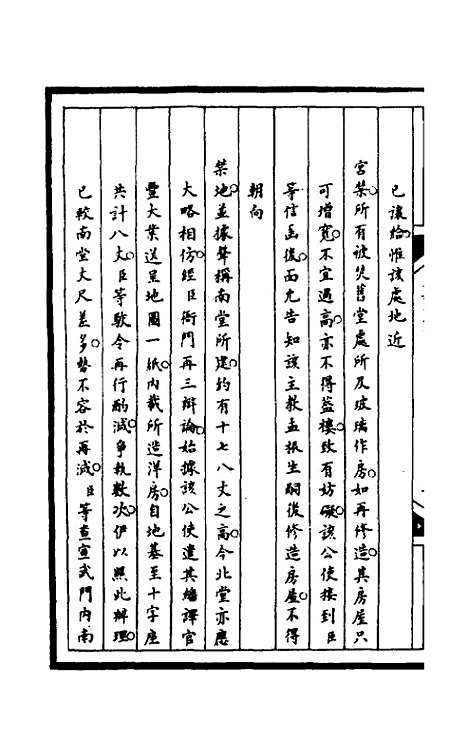 已讓給惟該處地近
宮禁所有被焚舊堂處所及玻璃作房如再修造其房屋只
可增寬不宜過高亦不得蓋樓致有妨礙該公使接到臣
等信函後面允告知該主教孟振生嗣後修造房屋不得
朝向
禁地並據聲稱南堂所建約有十七八丈之高今北堂亦應
大略相仿經臣衙門再三辯論始據該公使遣其繙譯官
豐大業送呈地圖一紙內載所造洋房自地基至十字座
共計八丈臣等駮令再行酌減爭執數次伊以照此辦理
已較南堂丈尺差多勢不容於再減臣等查宣武門內南